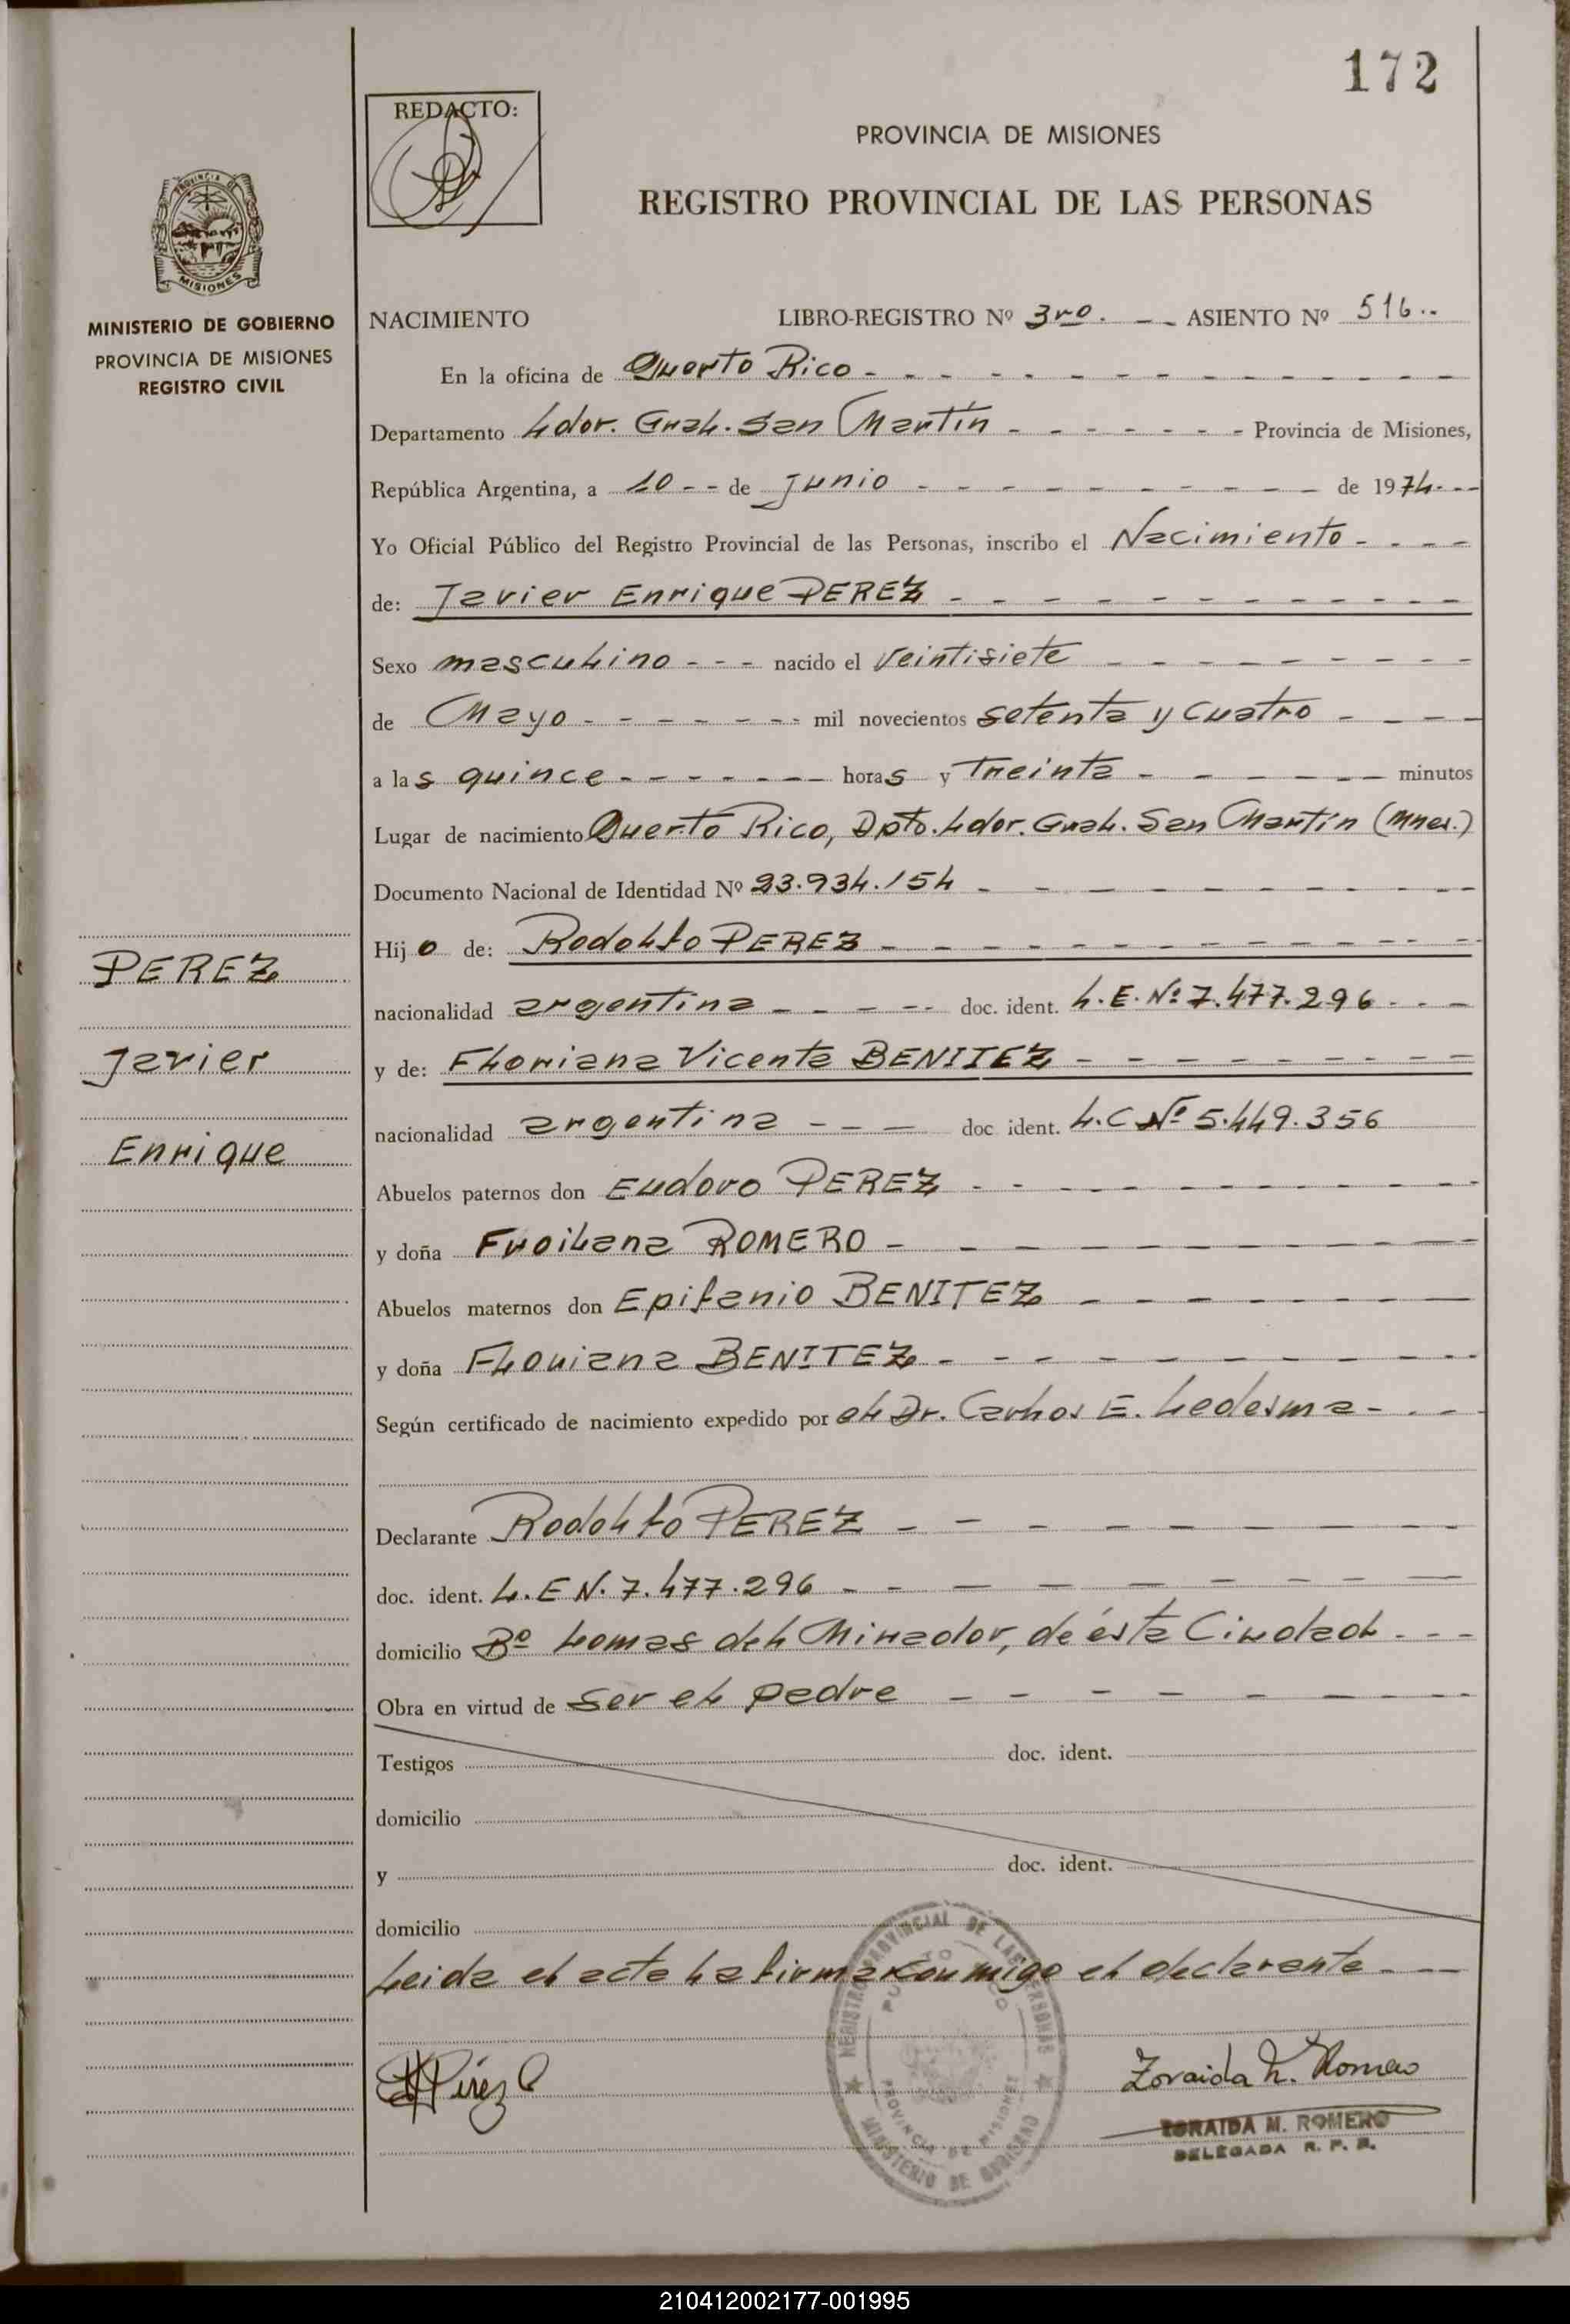 172
REDACTO:
PROVINCIA DE MISIONES
REGISTRO PROVINCIAL DE LAS PERSONAS
PROVINCIA DE
MISIONES
MINISTERIO DE GOBIERNO
PROVINCIA DE MISIONES
REGISTRO CIVIL
NACIMIENTO LIBRO-REGISTRO Nº 3ro. - - ASIENTO Nº 516..
En la oficina de Puerto Rico - - - - - - - - - - - - - -
Departamento Ldor. Gral. San Martín - - - - - - - Provincia de Misiones,
República Argentina, a 10 - - de Junio - - - - - - - - - - de 1974 - - -
Yo Oficial Público del Registro Provincial de las Personas, inscribo el Nacimiento - - - -
de: Javier Enrique PEREZ - - - - - - - - - - -
Sexo masculino - - - nacido el Veintisiete - - - - - - - - -
de Mayo - - - - - - - - mil novecientos setenta y cuatro - - - -
a las quince - - - - - - - horas y Treinta - - - - - - - minutos
Lugar de nacimiento Puerto Rico, Dpto. Ldor. Gral. San Martín (Mnes.)
Documento Nacional de Identidad Nº 23.934.154 - - - - - - - - - -
Hijo de: Rodolfo PEREZ - - - - - - - - - - - - - -
nacionalidad argentina - - - - - doc. ident. L.E. Nº 7.477.296 - - -
y de: Floriana Vicenta BENITEZ - - - - - - - - -
nacionalidad argentina - - - doc. ident. L.C Nº 5.449.356
Abuelos paternos don Eudoro PEREZ - - - - - - - - - - - -
y doña Froilana ROMERO - - - - - - - - - - -
Abuelos maternos don Epifanio BENITEZ - - - - - - - - - -
y doña Floriana BENITEZ - - - - - - - - - - -
Según certificado de nacimiento expedido por el Dr. Carlos E. Ledesma - - - -
Declarante Rodolfo PEREZ - - - - - - - - - -
doc. ident. L.E N. 7.477.296 - - - - - - - - -
domicilio Bº Lomas del Mirador, de ésta Ciudad - - -
Obra en virtud de ser el padre - - - - - - - -
Testigos doc. ident.
domicilio
y doc. ident.
domicilio
Leida el acta la firma conmigo el declarante - - -
PEREZ
Javier
Enrique
Pérez
REGISTRO PROVINCIAL DE LAS PERSONAS
PROVINCIA DE MISIONES
MINISTERIO DE GOBIERNO
Zoraida M. Romero
ZORAIDA M. ROMERO
DELEGADA R. P. P.
210412002177-001995